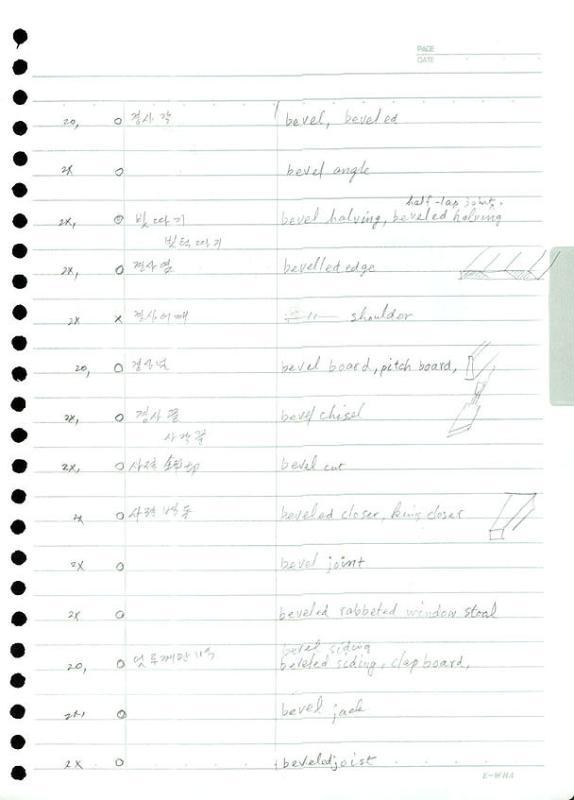 PAGE
DATE
20, o 경사각 bevel, beveled
2x o bevel angle
half-lap joint.
2x, o 빗따기 bevel halving, beveled halving
빗턱따기
2x, o 경사옆 bevelled edge
2x x 경사어깨 —〃— shoulder
20, o bevel board, pitch board,
2x, o 경사끌 bevel chisel
사각끌
2x, o 사절 bevel cut
2x o beveled closer, king closer
2x o bevel joint
2x o beveled rabbeted window stool
bevel siding
20, o beveled siding, clapboard,
2x, o bevel jack
2x o beveled joist
E-WHA